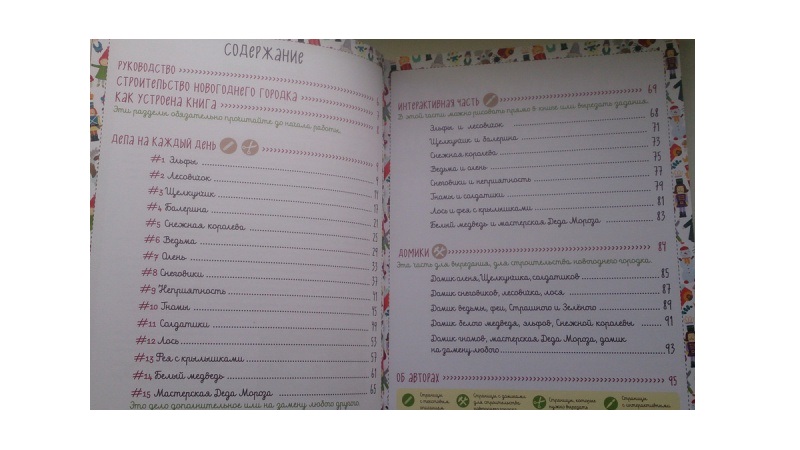 СОДЕРЖАНИЕ
РУКОВОДСТВО
СТРОИТЕЛЬСТВО НОВОГОДНЕГО ГОРОДКА
КАК УСТРОЕНА КНИГА
Эти разделы обязательно прочитайте до начала работы.
ДЕЛА НА КАЖДЫЙ ДЕНЬ
#1 Эльфы
#2 Лесовичок 9
#3 Щелкунчик 11
#4 Балерина 17
#5 Снежная королева 21
#6 Ведьма 25
#7 Олень 29
#8 Снеговики 33
#9 Неприятность 37
#10 Гномы 45
#11 Солдатики 49
#12 Лось 53
#13 Фея с крылышками 57
#14 Белый медведь 61
#15 Мастерская Деда Мороза 65
Это дело дополнительное или на замену любого другого.
ИНТЕРАКТИВНАЯ ЧАСТЬ 69
В этой части можно рисовать прямо в книге или вырезать задания.
Эльфы и лесовичок 68
Щелкунчик и балерина 71
Снежная королева 73
Ведьма и олень 75
Снеговики и неприятность 77
Гномы и солдатики 79
Лось и фея с крылышками 81
Белый медведь и мастерская Деда Мороза 83
ДОМИКИ 84
Эта часть для вырезания, для строительства новогоднего городка.
Домик оленя, Щелкунчика, солдатиков 85
Домик снеговиков, лесовичка, лося 87
Домик ведьмы, феи, Страшного и Зелёного 89
Домик белого медведя, эльфов, Снежной королевы 91
Домик гномов, мастерская Деда Мороза, домик
на замену любого 93
ОБ АВТОРАХ 95
Страницы
Страницы с домиками
для строительства
Страницы, которые
нужно вырезать
Страницы
с интерактивными